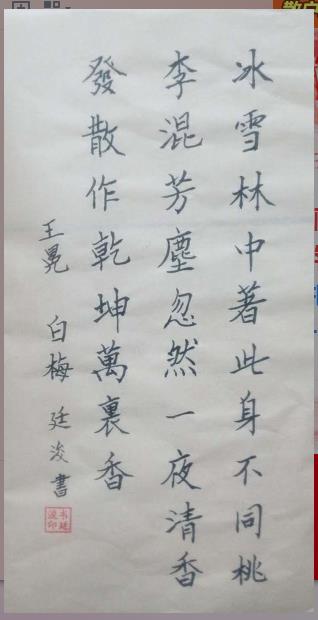 冰雪林中著此身不同桃
李混芳塵忽然一夜清香
發散作乾坤萬裏香
王冕 白梅 廷浚書